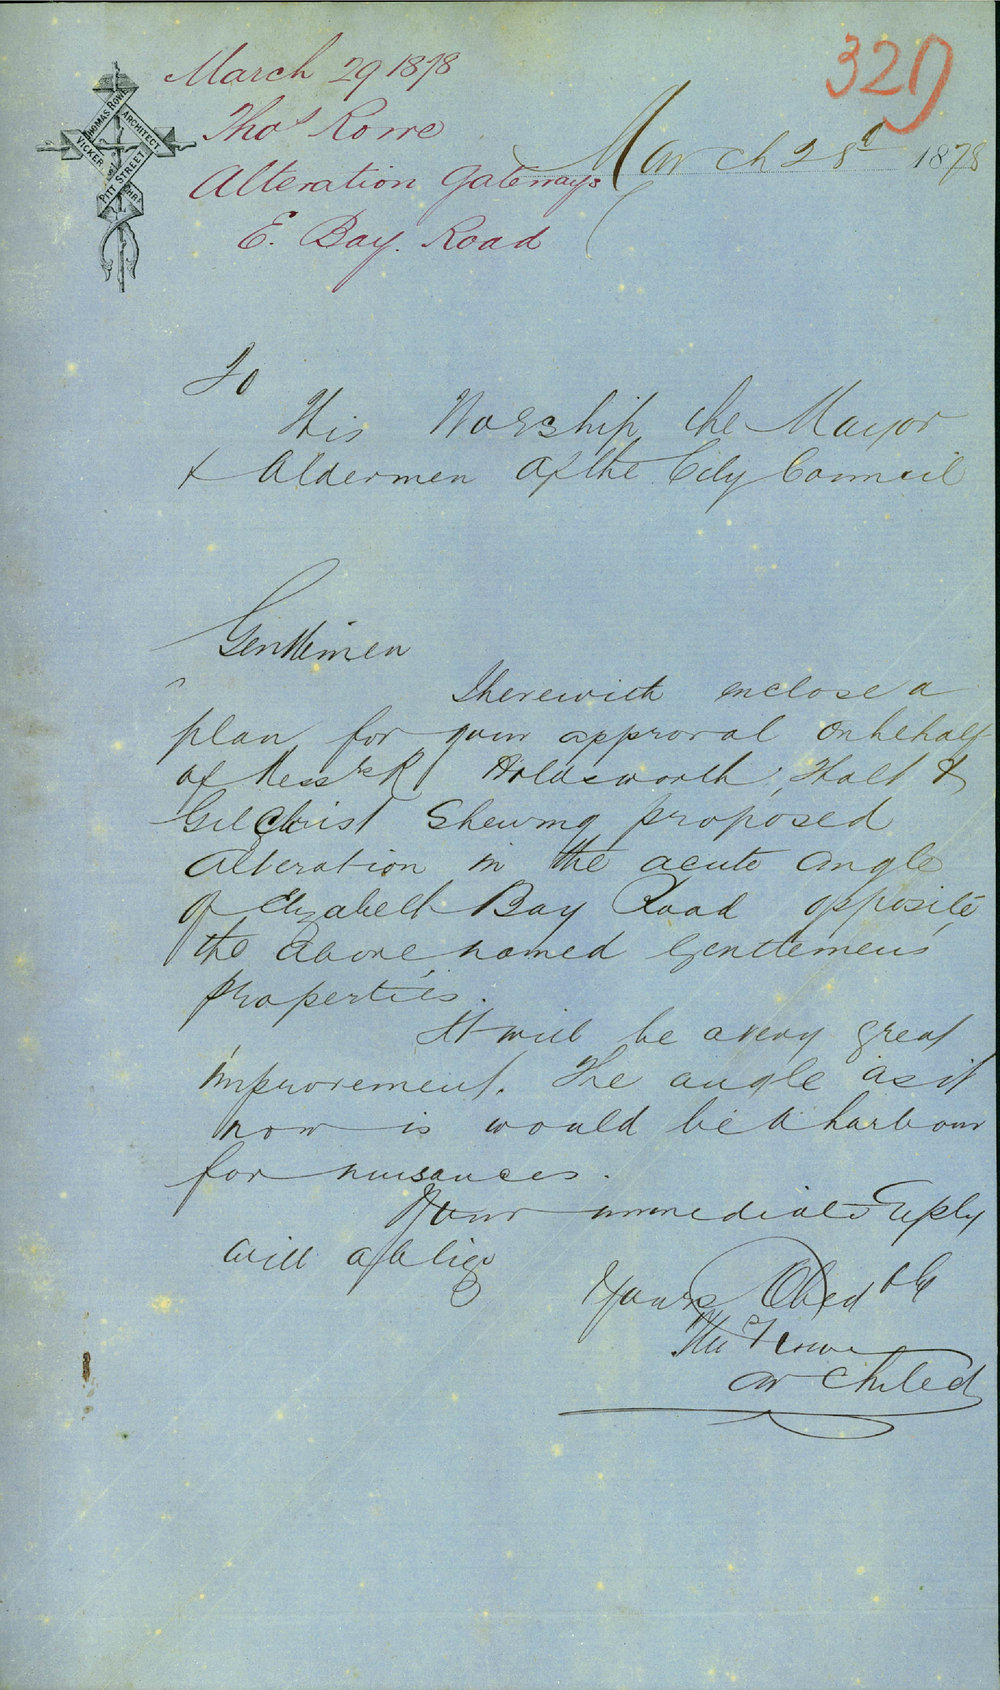 March 29 1878
Thos Rowe
Alteration Gateways
E. Bay. Road
THOMAS ROWE
ARCHITECT
VICKER
PITT STREET
March 28 1878
To
His Worship the Mayor
& Aldermen of the City Council
Gentlemen
I herewith enclose a
plan for your approval on behalf
of Messrs R Holdsworth, Halt &
Gilchrist Shewing proposed
alteration in the acute angle
of Elizabeth Bay Road opposite
the above named Gentlemens
properties.
It will be a very great
improvement. The angle as it
now is would be a harbour
for nuisances.
Your immediate reply
will oblige
Yours Obed
Thos Rowe
architect